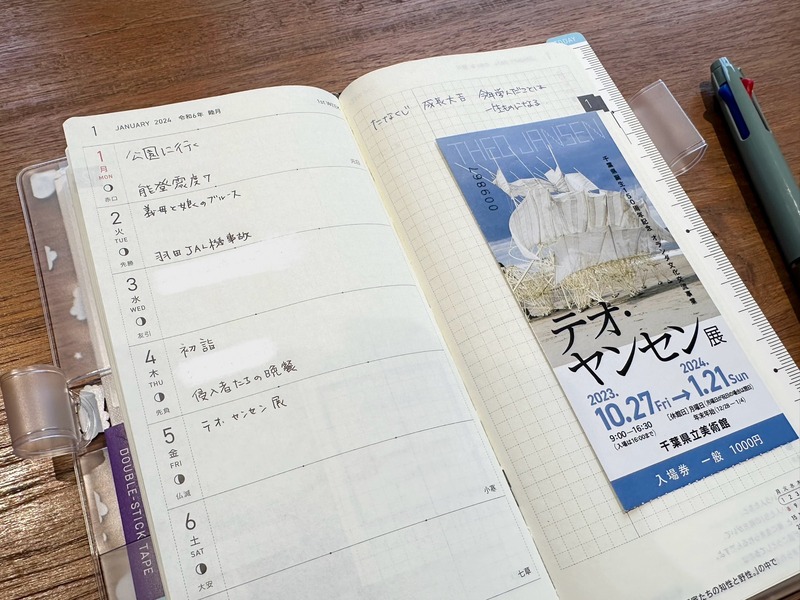 1 JANUARY 2024 令和6年 睦月
1 月 MON 赤口
公園に行く
能登震度7
元日
2 火 TUE 先勝
義母と娘のブルース
羽田JAL機事故
3 水 WED 友引
4 木 THU 先負
初詣
侵入者たちの晩餐
5 金 FRI 仏滅
テオ・ヤンセン展
6 土 SAT 大安
小寒
七草
DOUBLE-STICK TAPE
1
THEO JANSEN
009867
千葉県誕生150周年記念 オランダ文化交流事業
テオ・
ヤンセン展
2023.
10.27 Fri → 2024. 1.21 Sun
9:00―16:30
(入場は16:00まで)
年末年始(12/28―1/4)
千葉県立美術館
入場券 一般 1000円